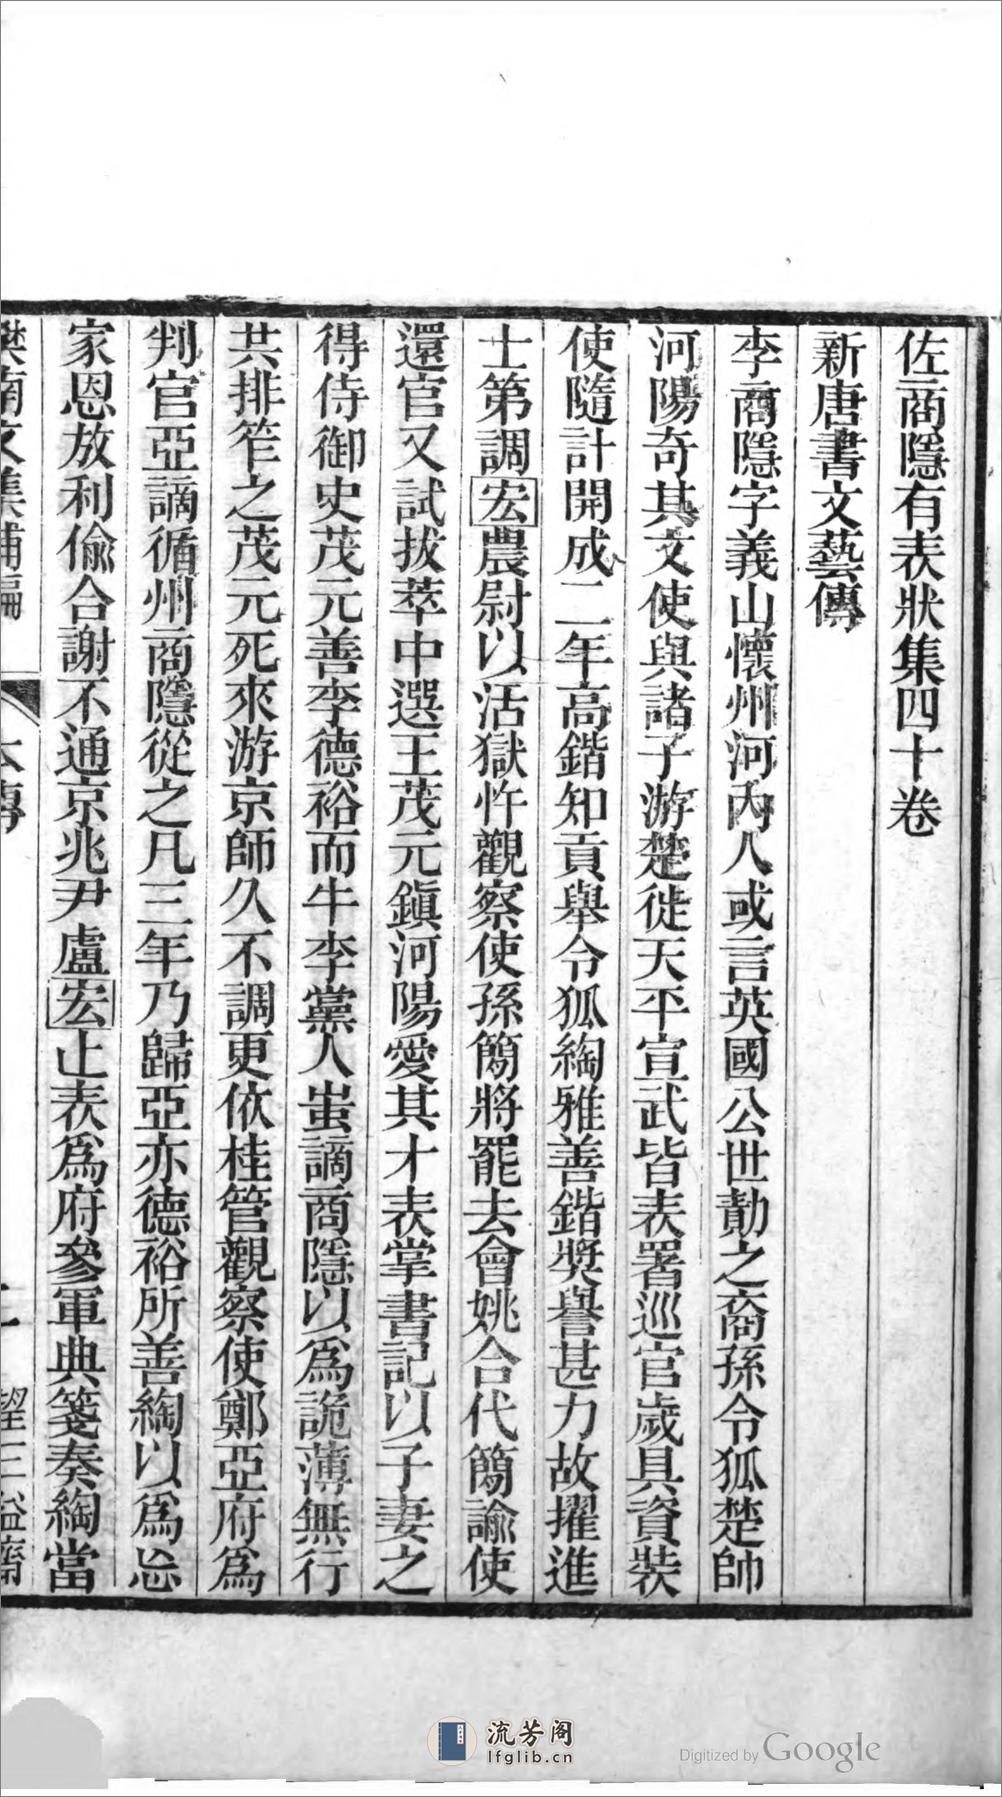 佐商隱有表狀集四十卷
新唐書文藝傳
李商隱字義山懷州河內人或言英國公世勣之裔孫令狐楚帥
河陽奇其文使與諸子游楚徙天平宣武皆表署巡官歲具資裝
使隨計開成二年高鍇知貢舉令狐綯雅善鍇獎譽甚力故擢進
士第調宏農尉以活獄忤觀察使孫簡將罷去會姚合代簡諭使
還官又試拔萃中選王茂元鎮河陽愛其才表掌書記以子妻之
得侍御史茂元善李德裕而牛李黨人蚩謫商隱以為詭薄無行
共排笮之茂元死來游京師久不調更依桂管觀察使鄭亞府為
判官亞謫循州商隱從之凡三年乃歸亞亦德裕所善綯以為忘
家恩放利偷合謝不通京兆尹盧宏止表為府參軍典箋奏綯當
樊南文集補編 本傳 二 望三益齋
流芳阁
lfglib.cn
Digitized by Google